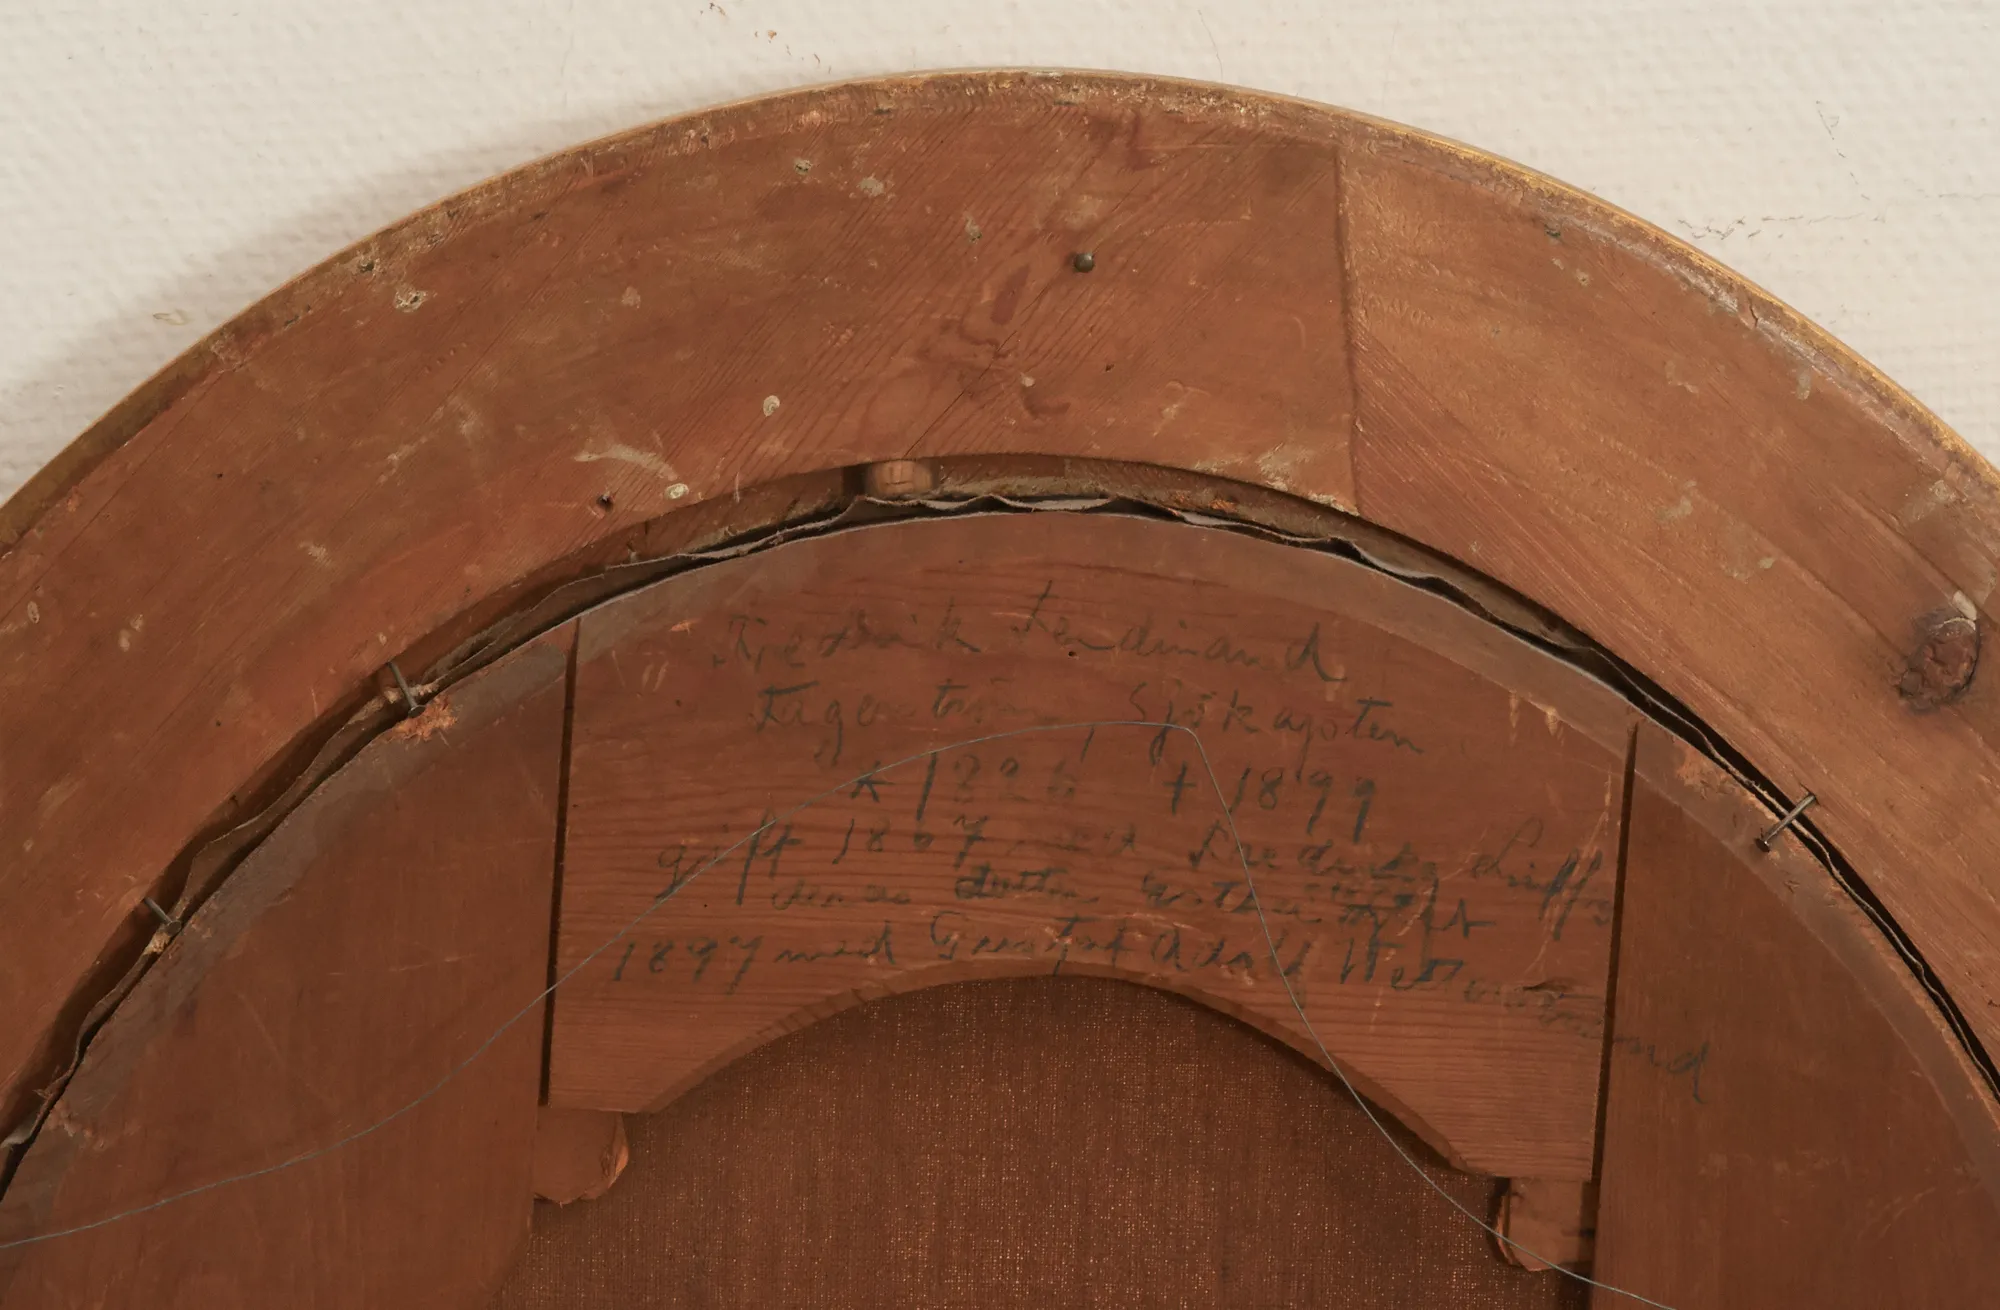 Fredrik Ferdinand
Fagerström, Sjökapten
* 1826 † 1899
gift 1867 med Fredrika
deras dotter gift
1897 med Gustaf Adolf Wetterstrand